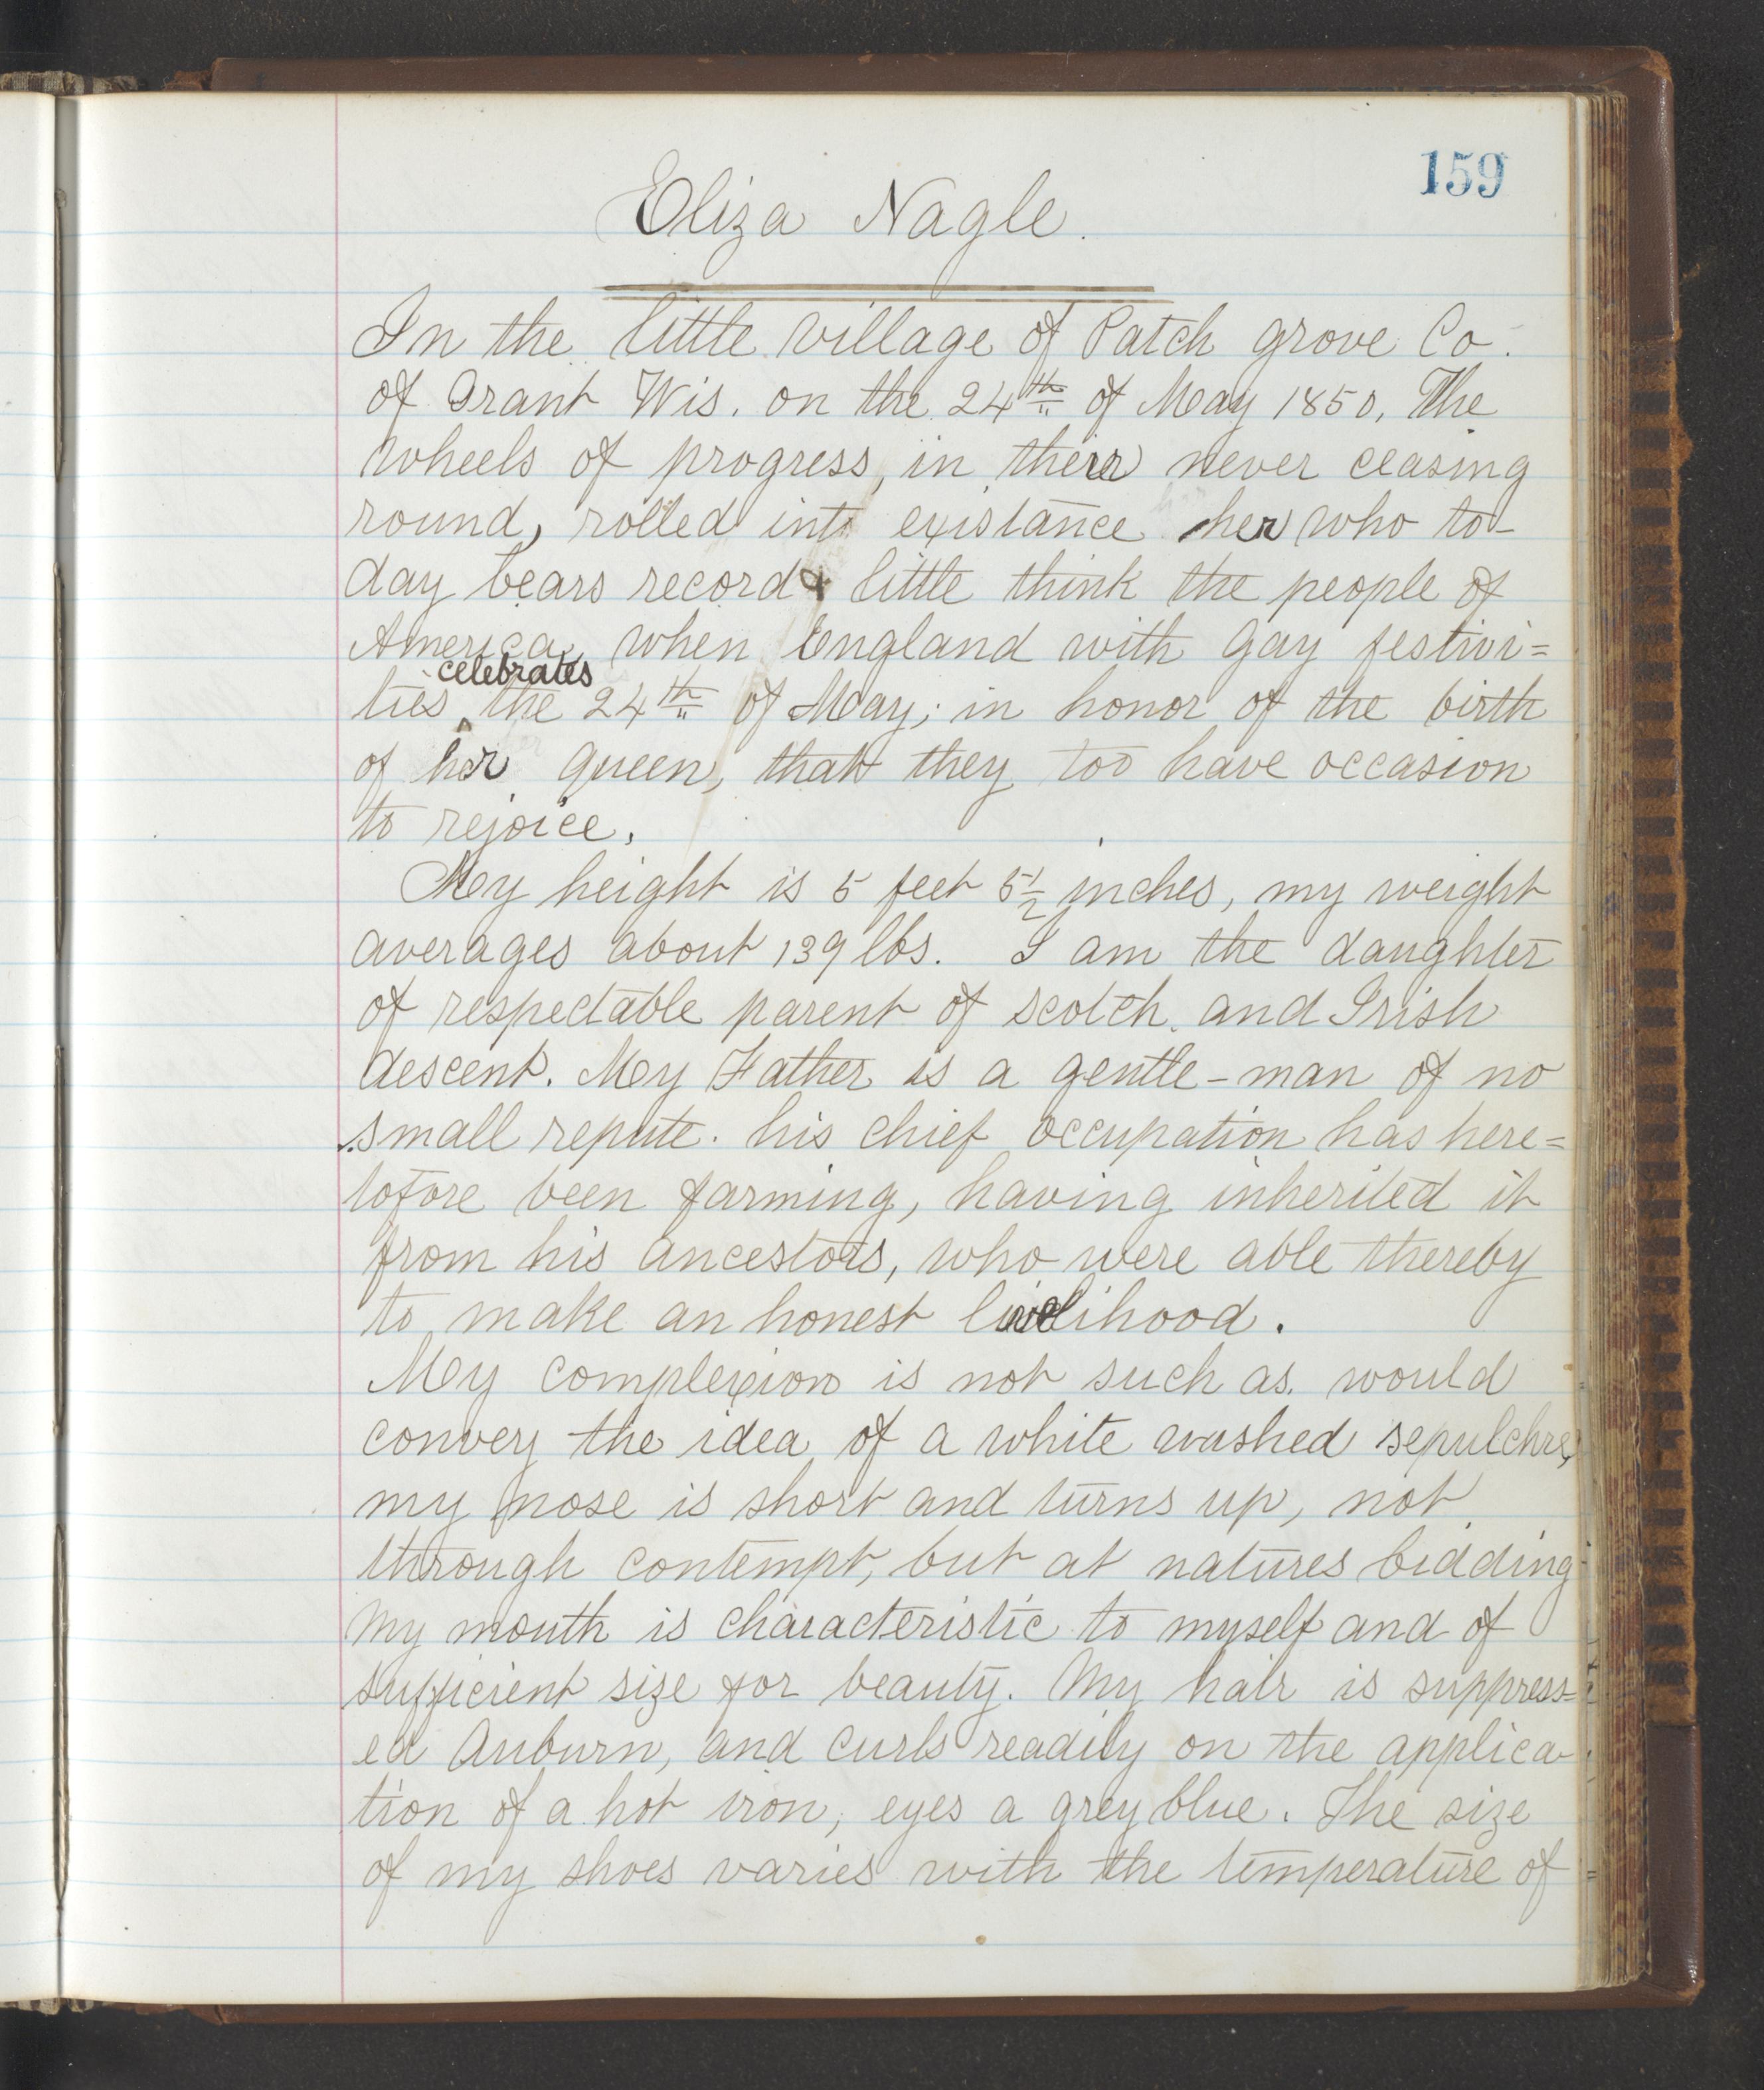 159
Eliza Nagle.
In the little village of Patch grove Co.
of Grant Wis. on the 24th of May 1850, The
wheels of progress, in their never ceasing
round, rolled into existance her who to-
day bears record & little think the people of
America, when England with gay festivi=
celebrates
ties ^ the 24th of May; in honor of the birth
of her queen, that they too have occasion
to rejoice.
My height is 5 feet 5 1/2 inches, my weight
averages about 139 lbs. I am the daughter
of respectable parent of scotch and Irish
descent. My Father is a gentle-man of no
small repute. his chief occupation has here=
tofore been farming, having inherited it
from his ancestors, who were able thereby
to make an honest livelihood.
My complexion is not such as would
convey the idea of a white washed sepulchre,
my nose is short and turns up, not
through contempt, but at natures bidding
My mouth is characteristic to myself and of
sufficient size for beauty. My hair is suppress=
ed Auburn, and curls readily on the applica-
tion of a hot iron, eyes a grey blue. The size
of my shoes varies with the temperature of